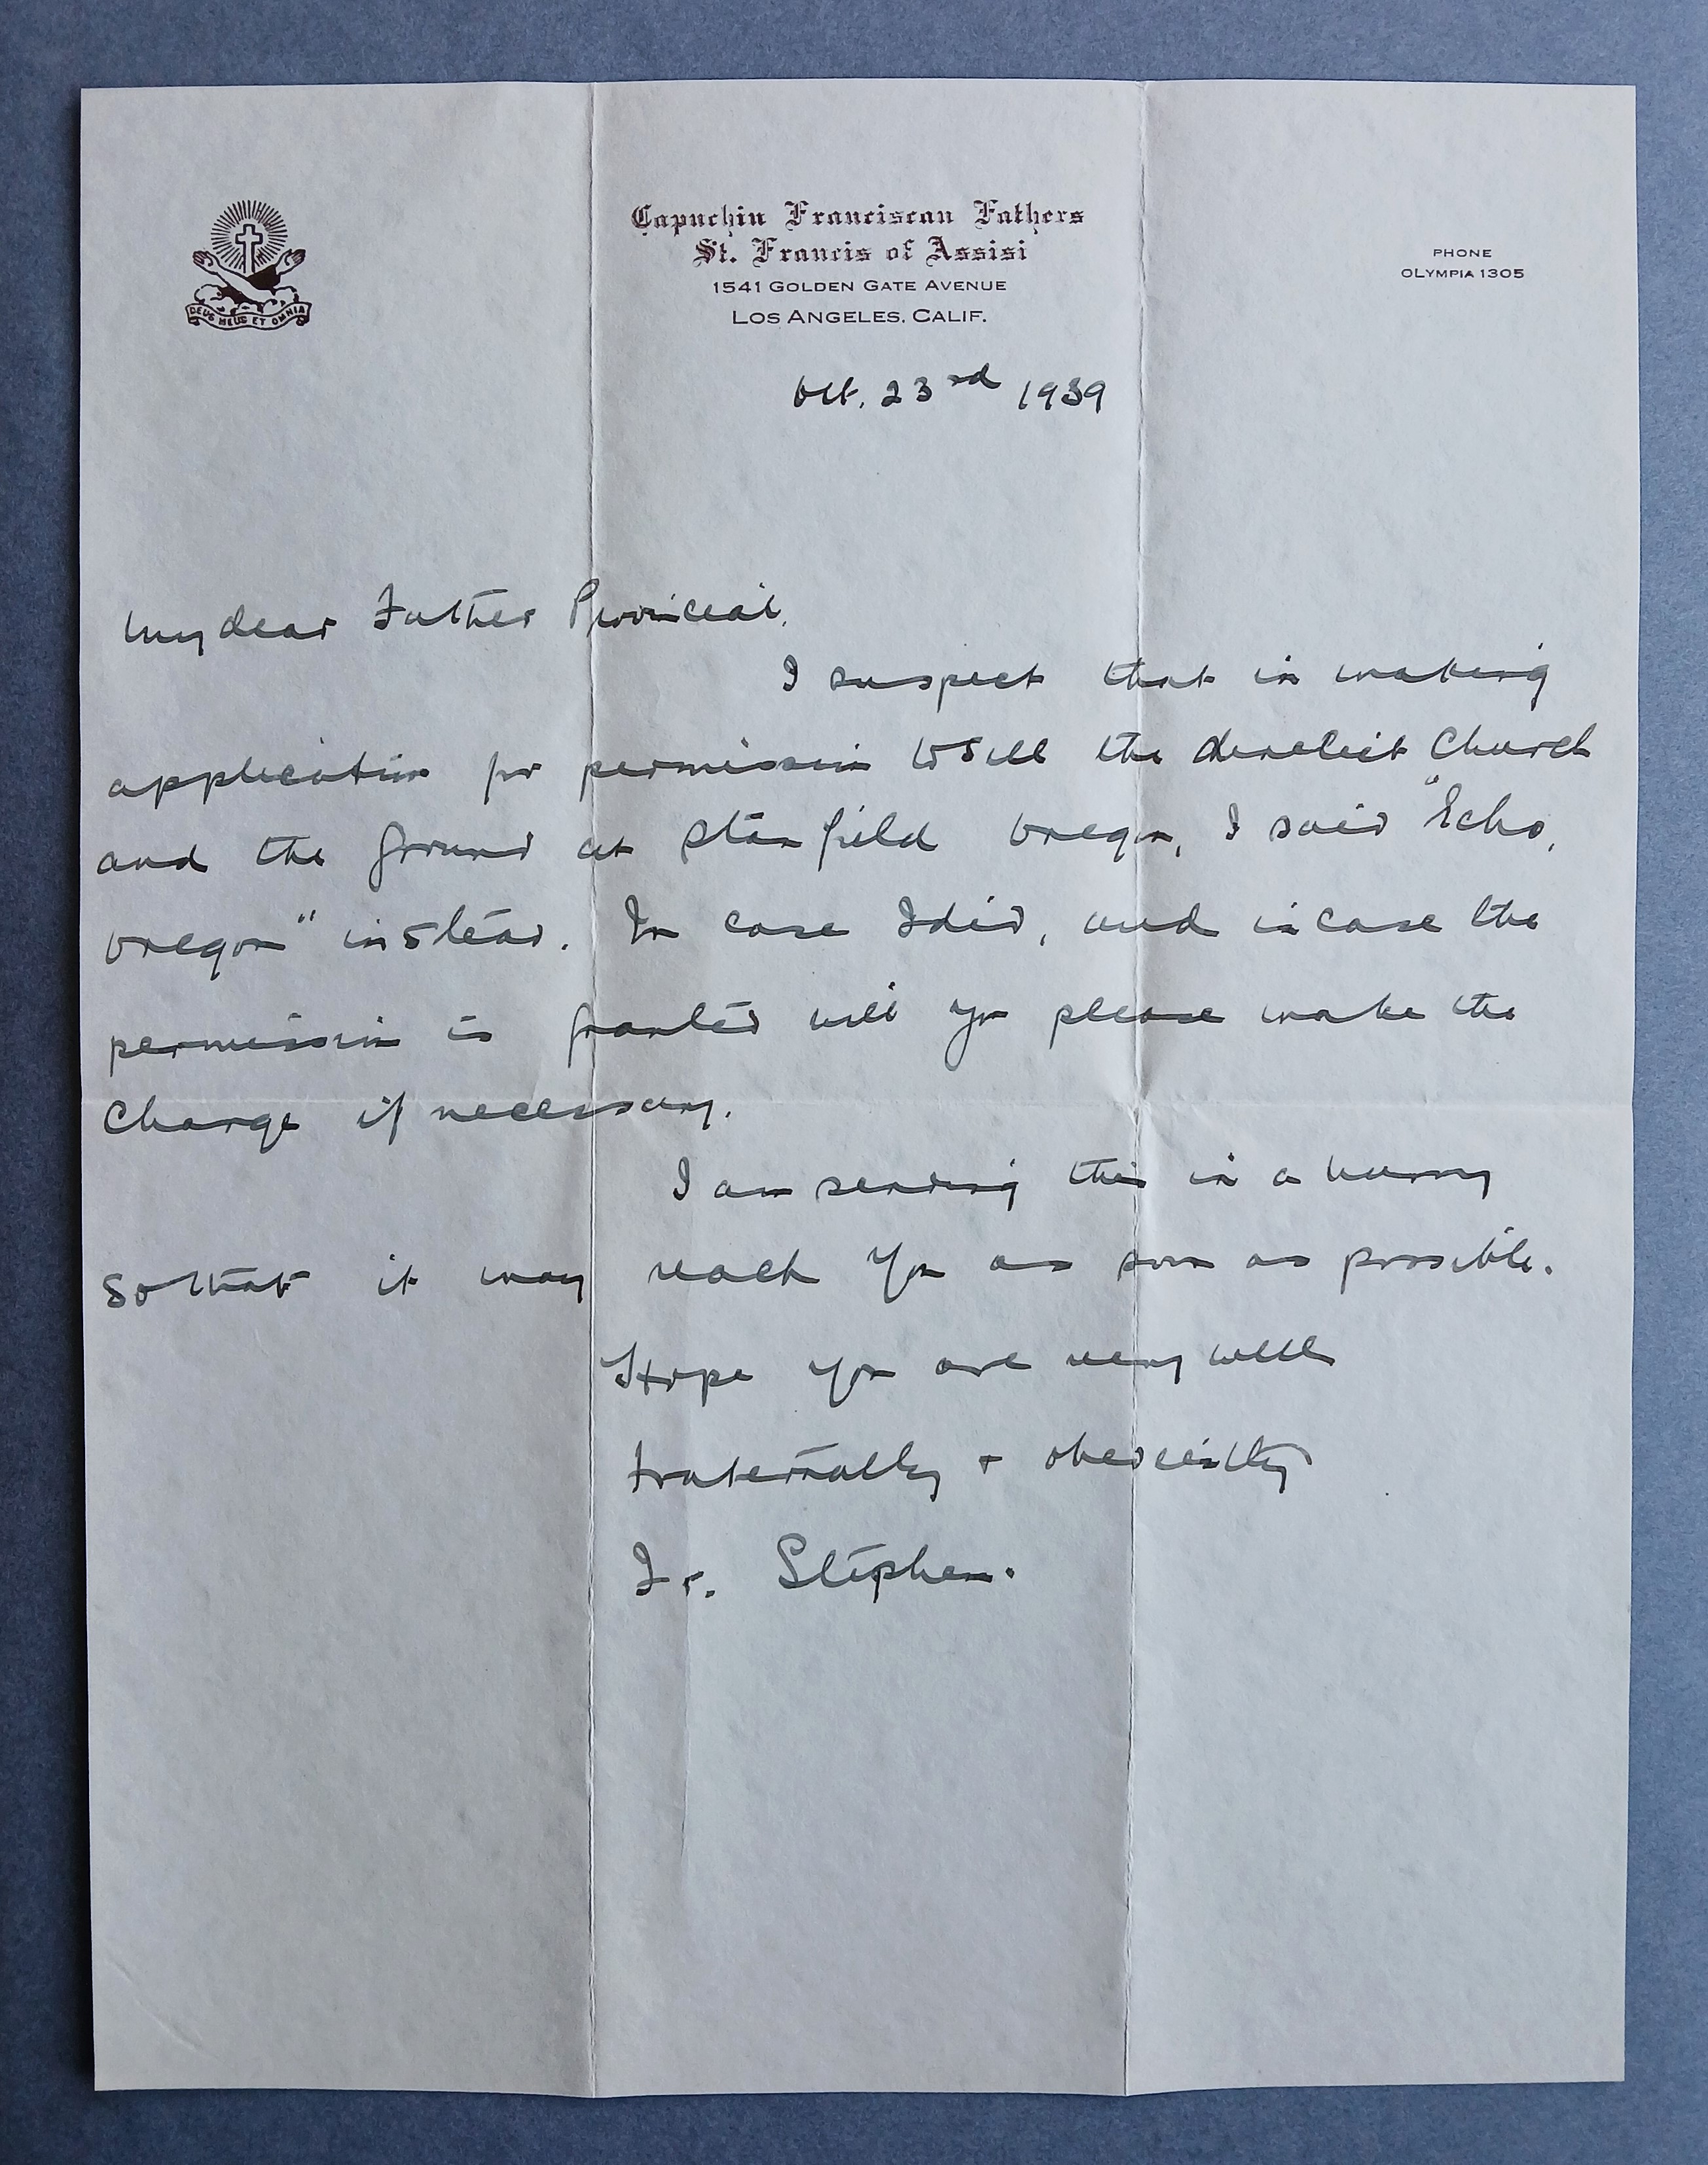 Capuchin Franciscan Fathers
St. Francis of Assisi
1541 GOLDEN GATE AVENUE
LOS ANGELES, CALIF.
PHONE
OLYMPIA 1305
DEUS MEUS ET OMNIA
Oct. 23rd 1939
My dear Father Provincial,
I suspect that in making
application for permission to sell the derelict Church
and the ground at Stanfield Oregon, I said "Echo,
Oregon" instead. In case I did, and in case the
permission is granted will you please make the
Change if necessary.
I am sending this in a hurry
So that it may reach you as soon as possible.
Hope you are very well
Fraternally + obediently
Fr. Stephen.